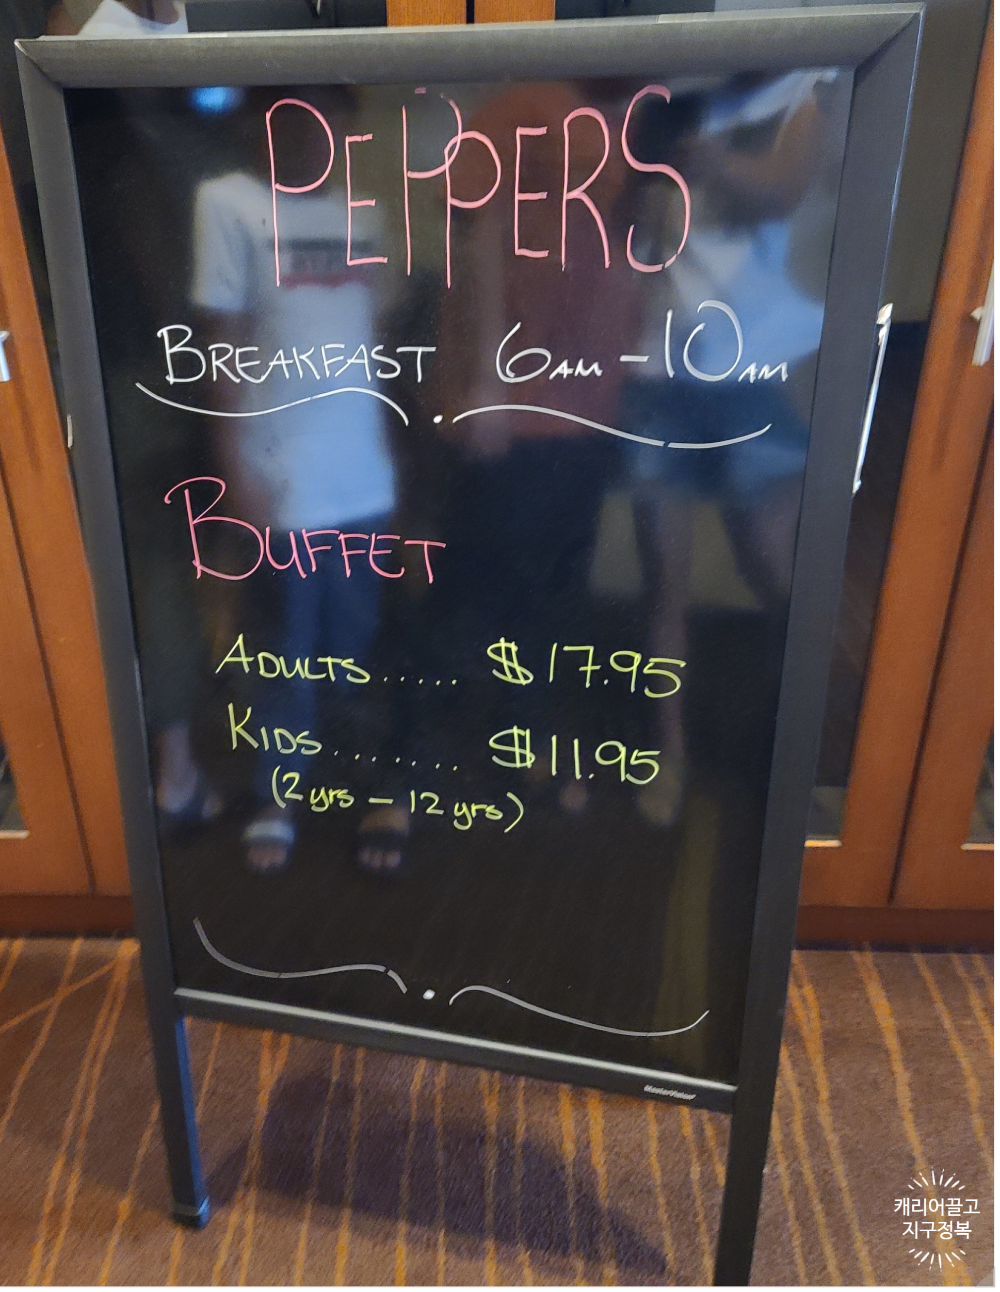 PEPPERS
BREAKFAST 6AM - 10AM
BUFFET
ADULTS ..... $17.95
KIDS ....... $11.95
(2 yrs - 12 yrs)
MasterVision
캐리어끌고
지구정복